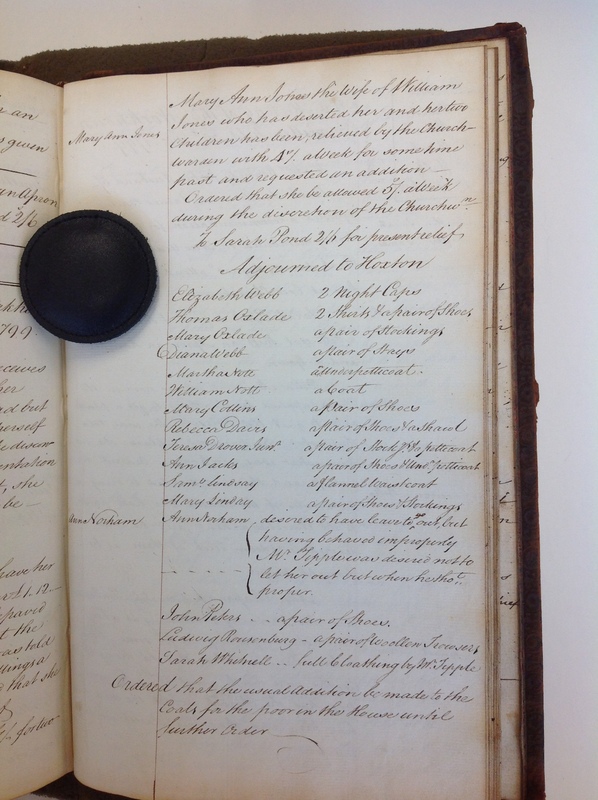 Mary Ann Jones the Wife of William
Mary Ann Jones
Jones who has deserted her and her two
Children has been relieved by the Church-
warden with 4/. a Week for some time
past and requested an addition —
Ordered that she be allowed 5/. a Week
during the discretion of the Churchwn.
To Sarah Pond 2/6 for present relief
Adjourned to Hoxton
Elizabeth Webb 2 Night Caps
Thomas Oxlade 2 Shirts & a pair of Shoes
Mary Oxlade a pair of Stockings
Diana Webb a Pair of Stays
Martha Nott a Under petticoat.
William Nott a Coat
Mary Collins a Pair of Shoes
Rebecca Davis a pair of Shoes & a Shawl
Teresa Drover Junr. a pair of Stockgs. & a petticoat
Ann Jacks a pair of Shoes & Undr. petticoat
Saml. Lindsay a flannel Waistcoat
Mary Linday a pair of Shoes & Stockings
Ann Norham
Ann Norham, desired to have leave to go out, but
having behaved improperly
Mr. Tipple was desired not to
let her out but when he thot.
proper.
John Peters - - a pair of Shoes.
Ludwig - a pair of woollen Trowsers
Sarah Whitnell - - full Cloathing by Mr. Tipple
Ordered that the usual addition be made to the
Coals for the poor in the House until
further Order
an
given
an Apron
2/6
1799
receives
her
but
herself
she
be —
have her
the
was told
that she
for two